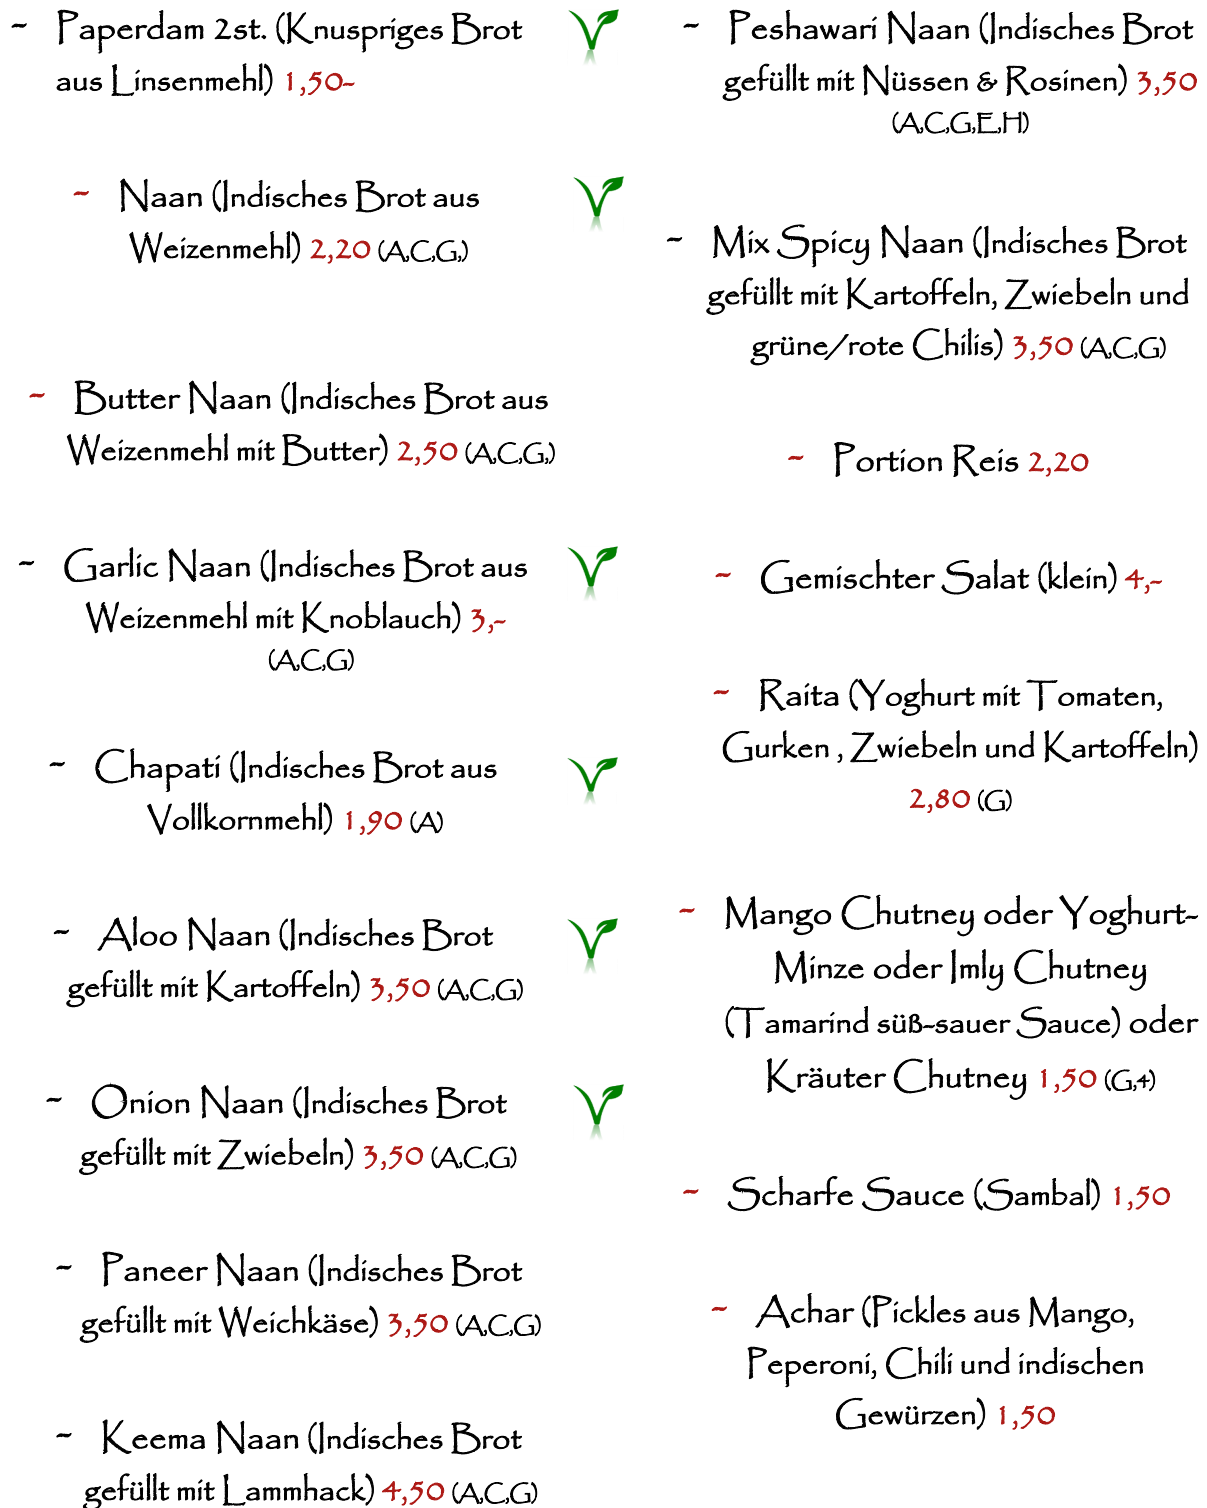 - Paperdam 2st. (Knuspriges Brot
aus Linsenmehl) 1,50-
- Naan (Indisches Brot aus
Weizenmehl) 2,20 (A,C,G,)
- Butter Naan (Indisches Brot aus
Weizenmehl mit Butter) 2,50 (A,C,G,)
- Garlic Naan (Indisches Brot aus
Weizenmehl mit Knoblauch) 3,-
(A,C,G)
- Chapati (Indisches Brot aus
Vollkornmehl) 1,90 (A)
- Aloo Naan (Indisches Brot
gefüllt mit Kartoffeln) 3,50 (A,C,G)
- Onion Naan (Indisches Brot
gefüllt mit Zwiebeln) 3,50 (A,C,G)
- Paneer Naan (Indisches Brot
gefüllt mit Weichkäse) 3,50 (A,C,G)
- Keema Naan (Indisches Brot
gefüllt mit Lammhack) 4,50 (A,C,G)
- Peshawari Naan (Indisches Brot
gefüllt mit Nüssen & Rosinen) 3,50
(A,C,G,E,H)
- Mix Spicy Naan (Indisches Brot
gefüllt mit Kartoffeln, Zwiebeln und
grüne/rote Chilis) 3,50 (A,C,G)
- Portion Reis 2,20
- Gemischter Salat (klein) 4,-
- Raita (Yoghurt mit Tomaten,
Gurken , Zwiebeln und Kartoffeln)
2,80 (G)
- Mango Chutney oder Yoghurt-
Minze oder Imly Chutney
(Tamarind süß-sauer Sauce) oder
Kräuter Chutney 1,50 (G,4)
- Scharfe Sauce (Sambal) 1,50
- Achar (Pickles aus Mango,
Peperoni, Chili und indischen
Gewürzen) 1,50